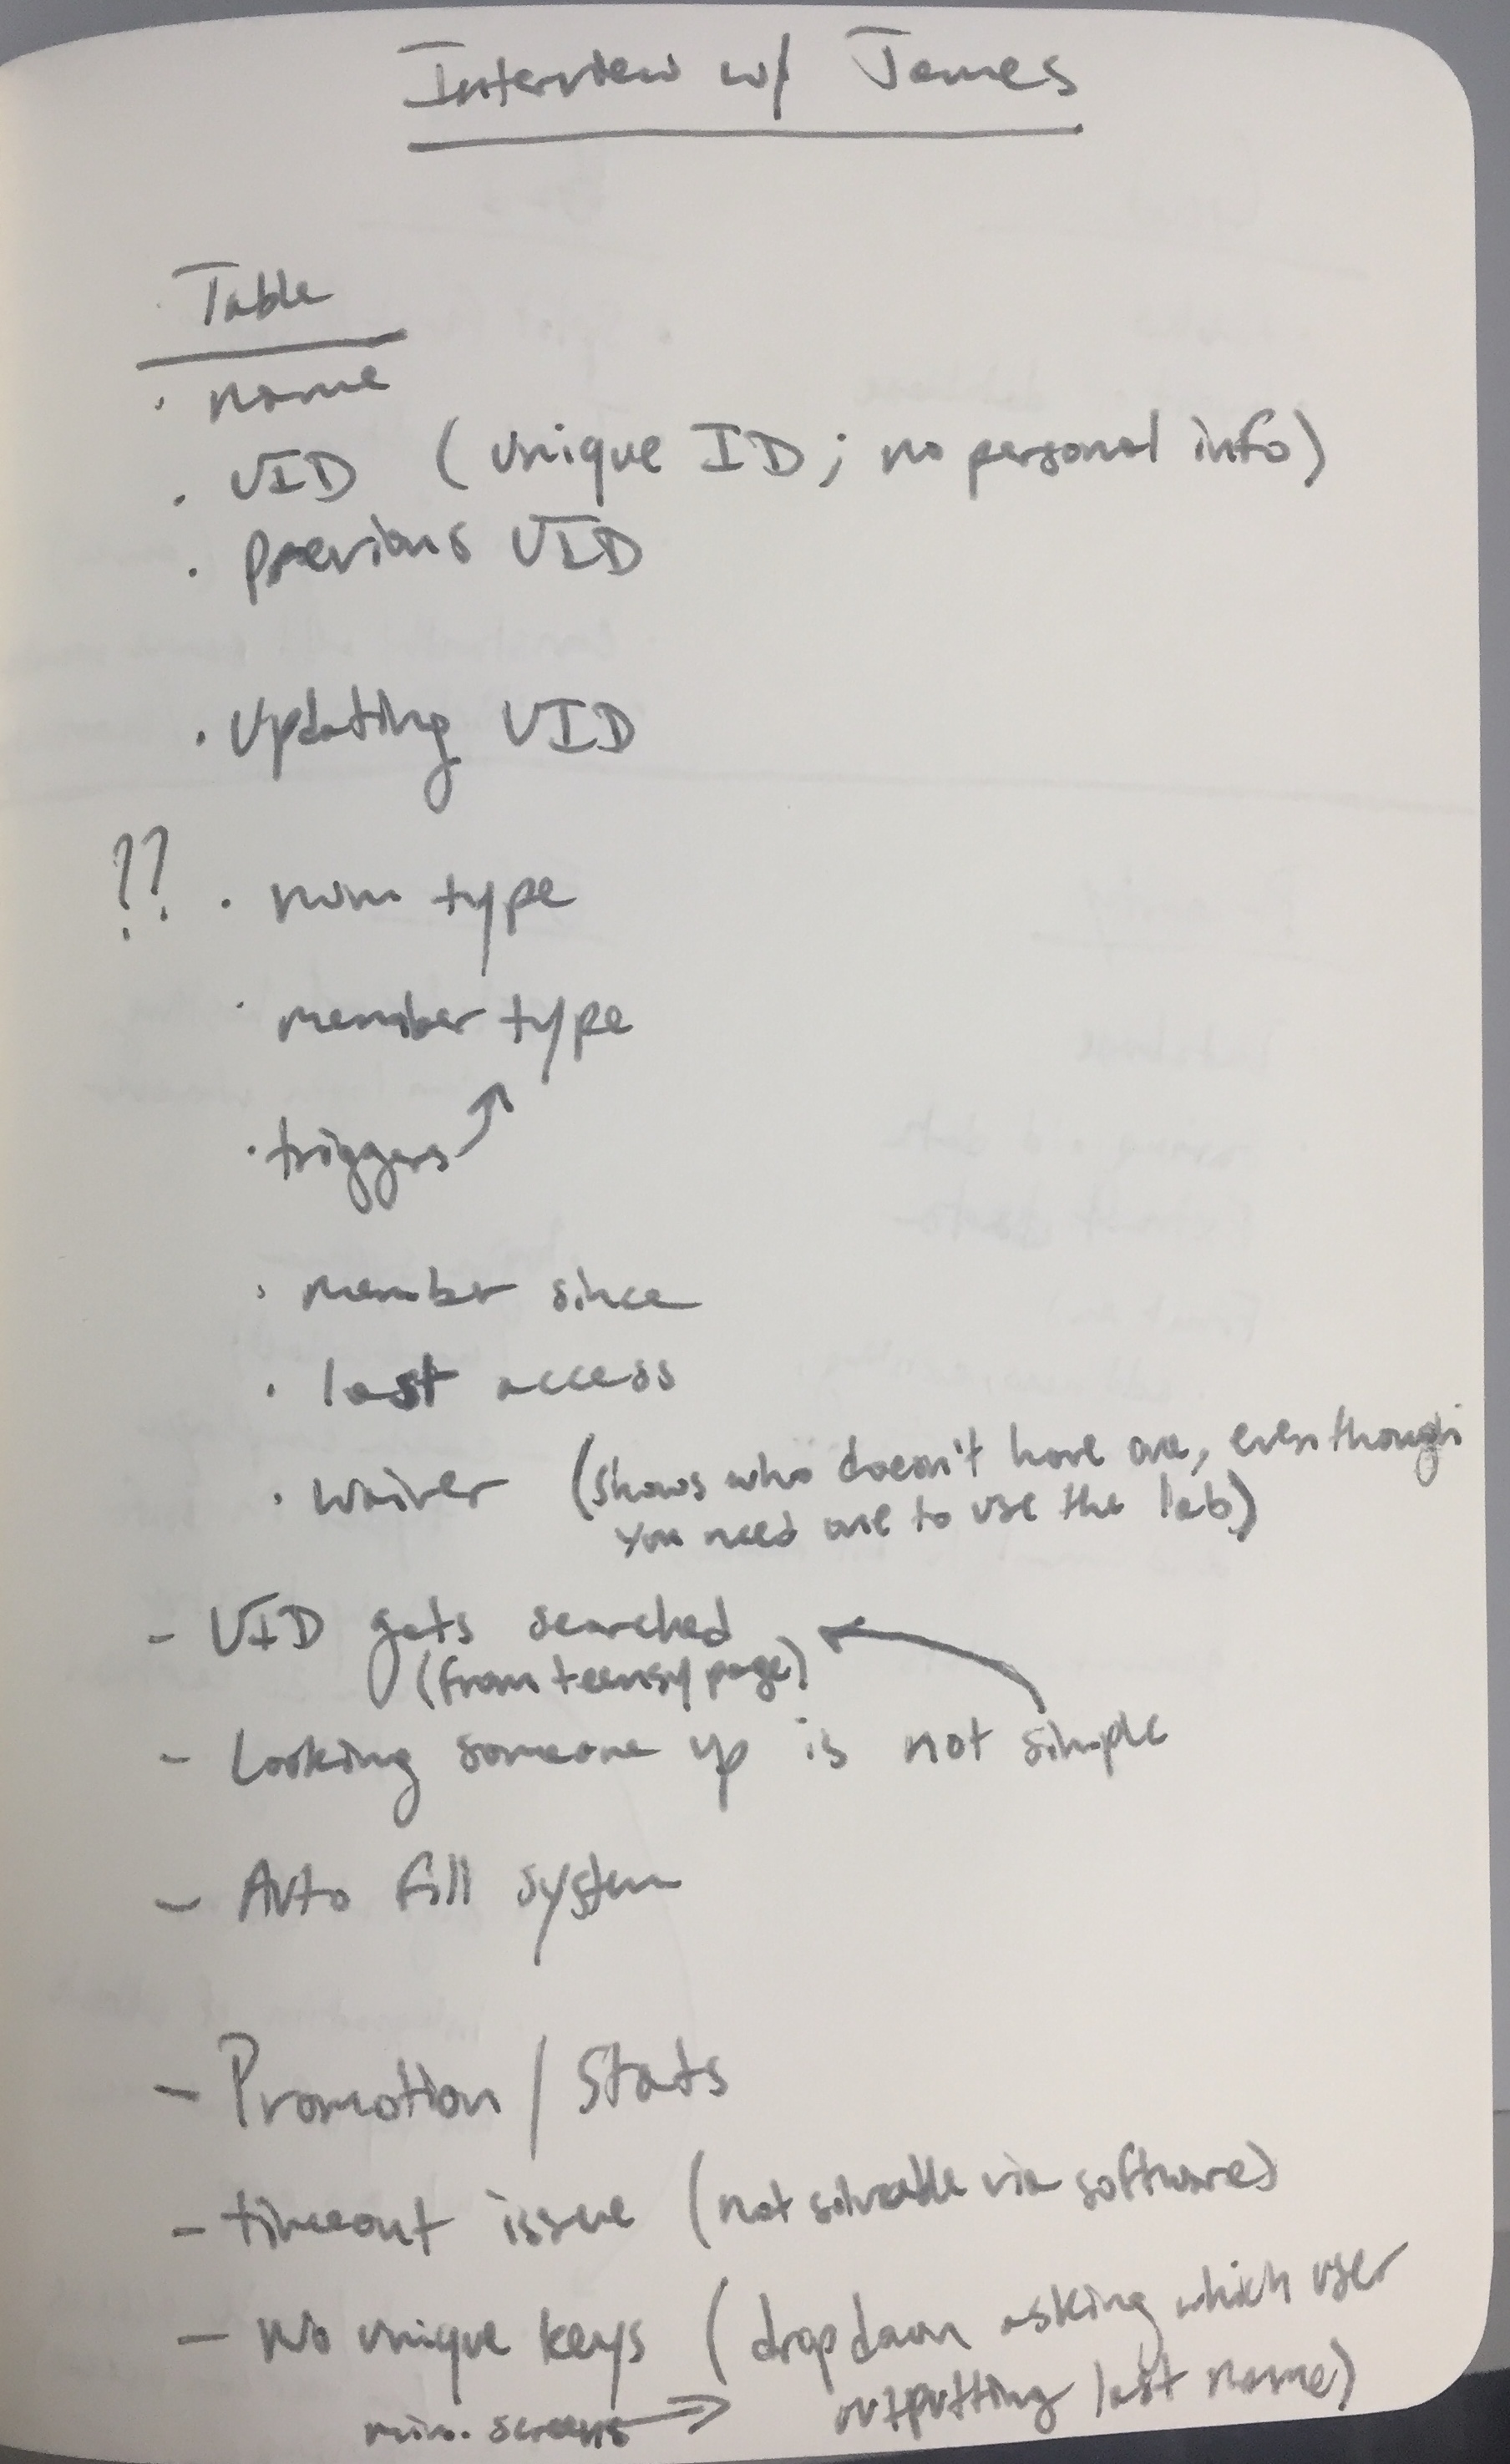 Interview w/ James
Table
· name
· UID (unique ID; no personal info)
· previous UID
· Updating UID
?? · num type
· member type
· triggers ↗
· member since
· last access
· waiver (shows who doesn't have one, even though
you need one to use the lab)
- UID gets searched
(from teensy page)
- Looking someone up is not simple
- Auto fill system
- Promotion / Stats
- timeout issue (not solvable via software)
- No unique keys (dropdown asking which user
outputting last name)
min. screens →